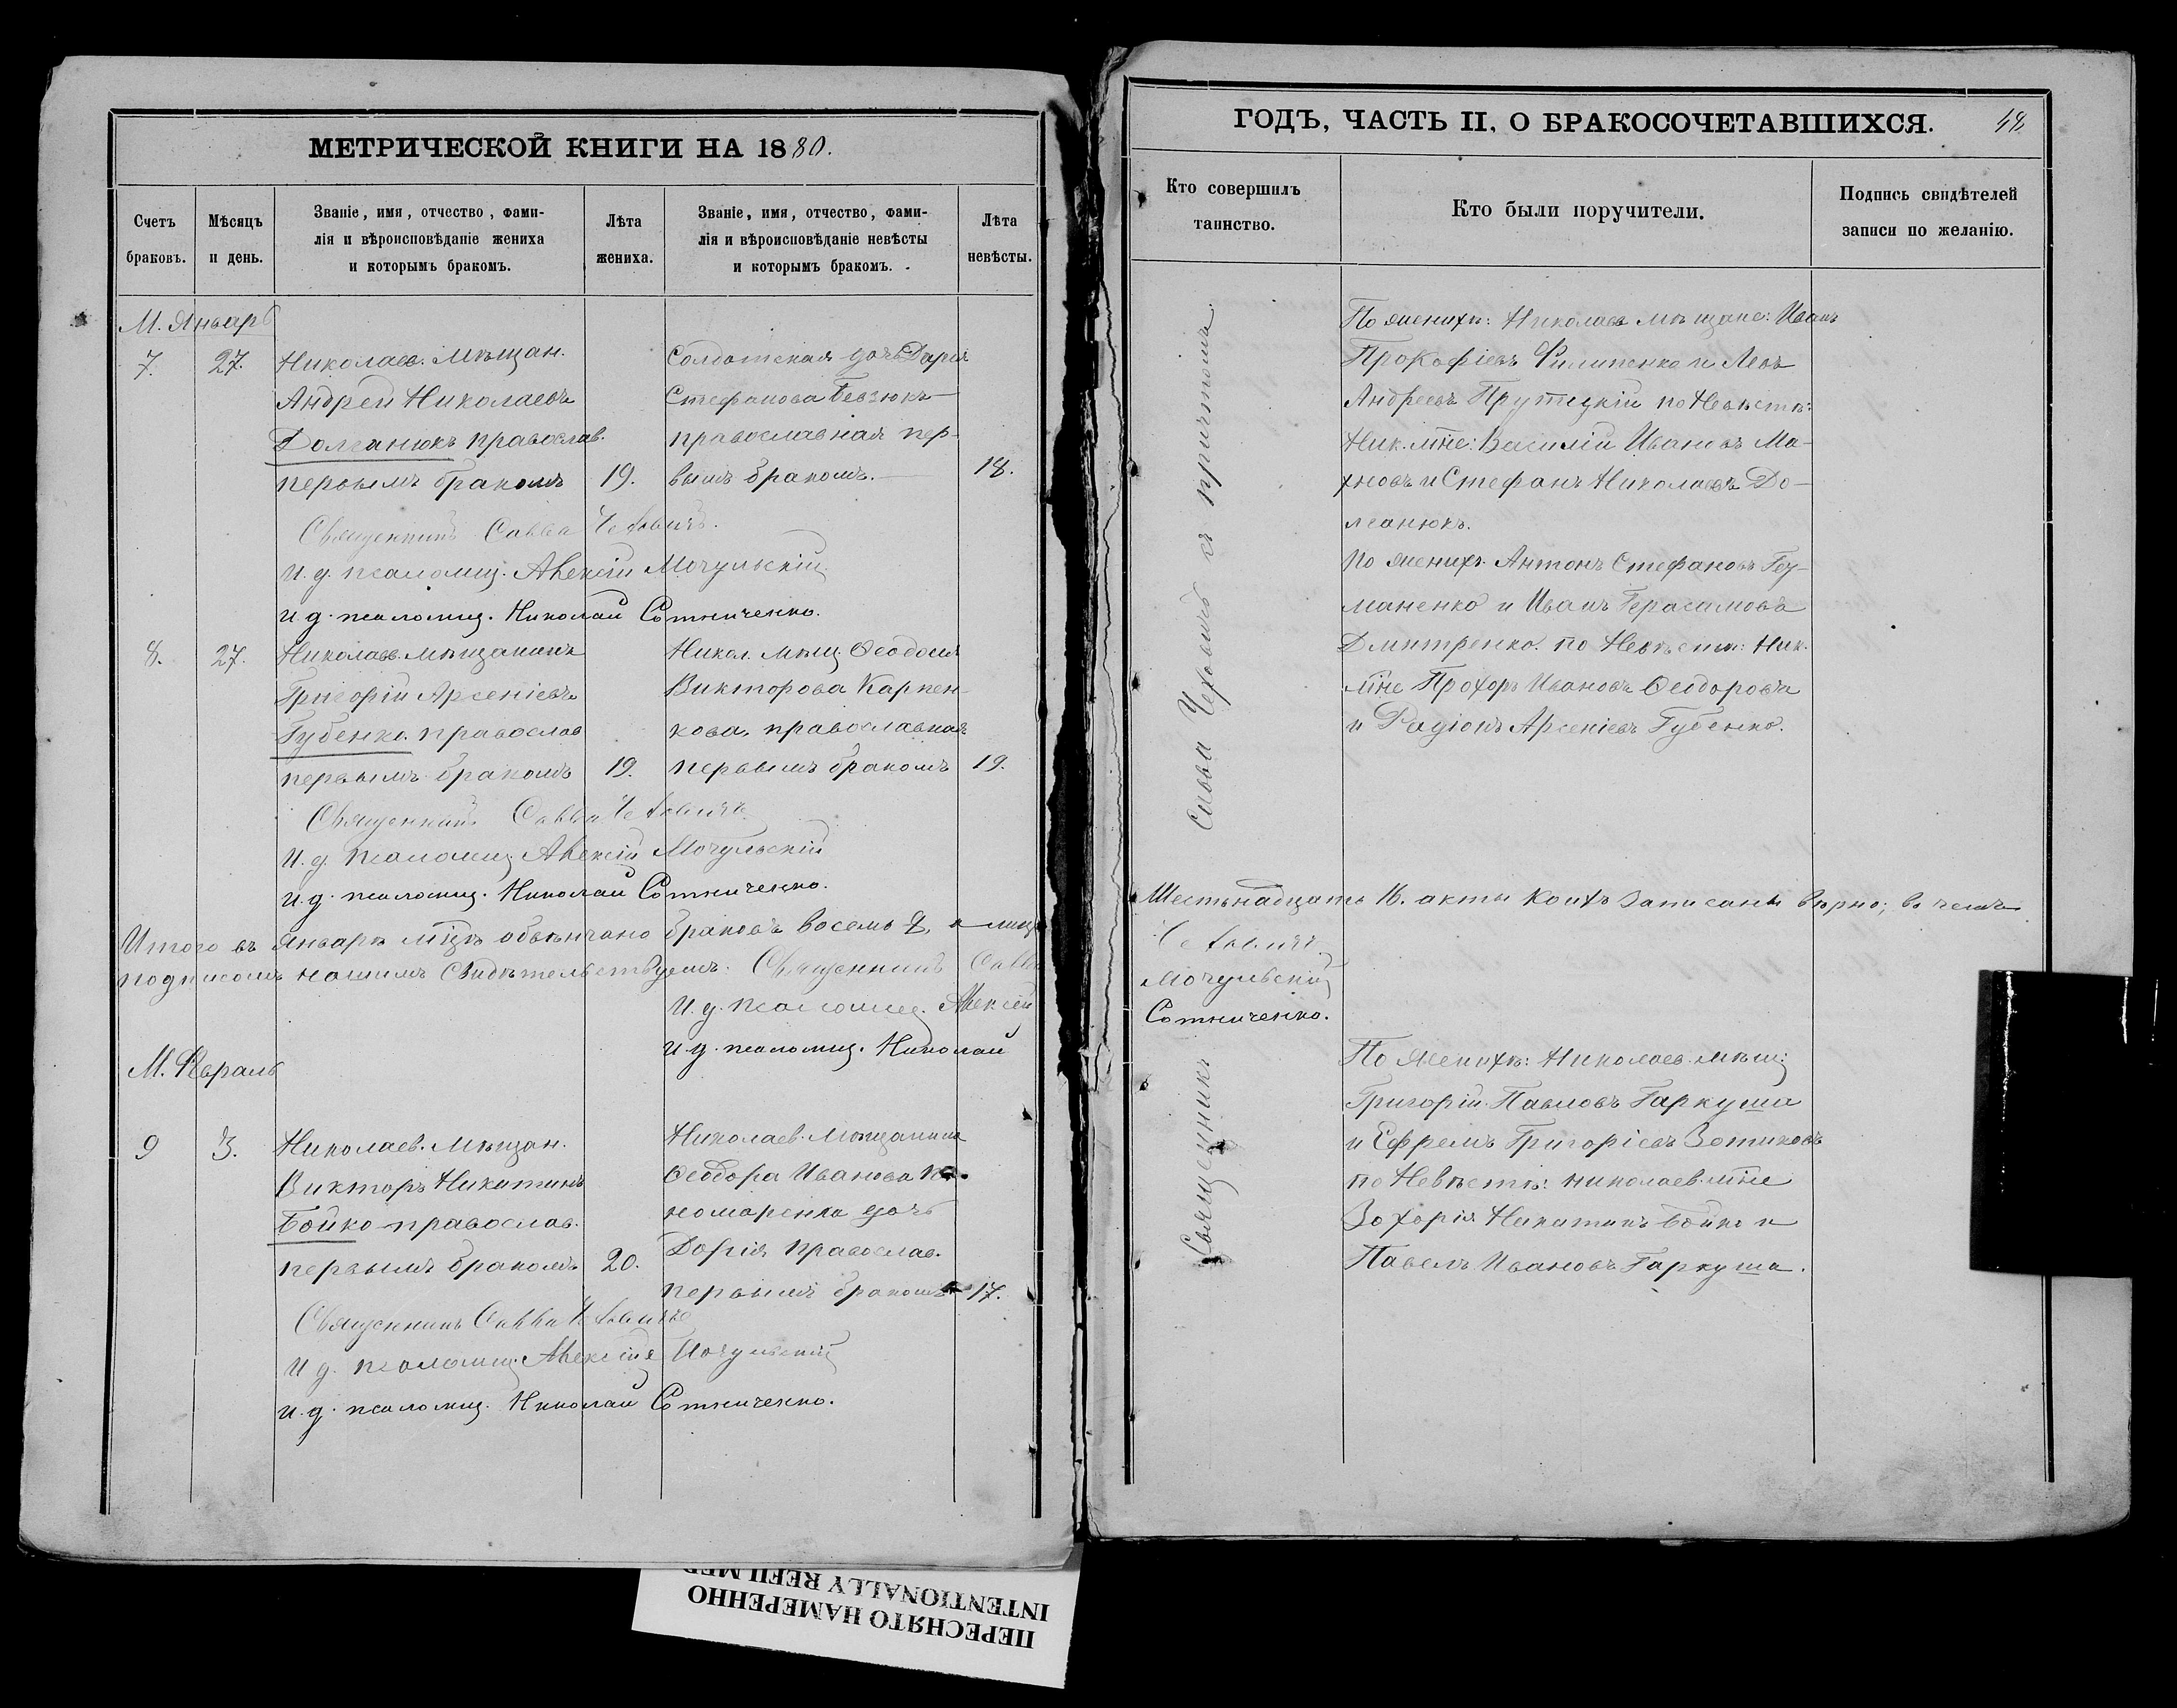 МЕТРИЧЕСКОЙ КНИГИ НА 1880.
Счетъ браковъ.
Мѣсяцъ и день.
Званіе, имя, отчество, фами-
лія и вѣроисповѣданіе жениха
и которымъ бракомъ.
Лѣта жениха.
Званіе, имя, отчество, фами-
лія и вѣроисповѣданіе невѣсты
и которымъ бракомъ.
Лѣта невѣсты.
М. Январь
7. 27.
Николаев. Мѣщан.
Андрей Николаевъ
Долганюкъ православ.
первымъ бракомъ 19.
Солдатская дочь Дарія
Стефанова Бевзюкъ
православная пер-
вымъ бракомъ. 18.
Священникъ Савва
И. д. псаломщ. Алексій Мочульскій
И. д. псаломщ. Николай Сотниченко.
8. 27.
Николаев. мѣщанинъ
Григорій Арсеніевъ
Губенко православ
первымъ бракомъ 19.
Никол. мѣщ. Ѳеодосія
Викторова Карпен-
кова, православная
первымъ бракомъ 19.
Священникъ Савва
И. д. псаломщ. Алексій Мочульскій
И. д. псаломщ. Николай Сотниченко.
Итого въ Январѣ м͠цѣ обвѣнчано браковъ восемь 8, а лицъ
подписомъ нашимъ свидѣтельствуемъ: Священникъ Савва
И. д. псаломщ. Алексій
И. д. псаломщ. Николай
М. Февраль
9 3.
Николаев. Мѣщан.
Викторъ Никитинъ
Бойко православ.
первымъ бракомъ 20.
Николаев. Мѣщанина
Ѳеодора Иванова По-
номаренка дочь
Дарія православ.
первымъ бракомъ 17.
Священникъ Савва
И. д. псаломщ. Алексій Мочульскій
И. д. псаломщ. Николай Сотниченко.
ГОДЪ, ЧАСТЬ II, О БРАКОСОЧЕТАВШИХСЯ. 48.
Кто совершилъ
таинство.
Кто были поручители.
Подпись свидѣтелей
записи по желанію.
Священникъ Савва съ причтомъ
По женихѣ: Николаев мѣщане: Иванъ
Прокофіевъ Филипенко и Левъ
Андреевъ Прутицкій по Невѣстѣ:
Ник. м͠не: Василій Ивановъ Ма-
хновъ и Стефанъ Николаевъ До-
лганюкъ.
По женихѣ Антонъ Стефановъ Гу-
маненко и Иванъ Герасимовъ
Дмитренко. по Невѣстѣ: Ник.
м͠не Прохоръ Ивановъ Ѳеодоровъ
и Радіонъ Арсеніевъ Губенко.
Шестьнадцать 16. акты коихъ записаны вѣрно; въ чемъ
Мочульскій
Сотниченко.
По женихѣ: Николаев. мѣщ:
Григорій Павловъ Гаркуша
и Ефремъ Григоріевъ Зотиковъ
по Невѣстѣ: николаев. м͠не
Захарія Никитинъ Бойко и
Павелъ Ивановъ Гаркуша.
ПЕРЕСНЯТО НАМЕРЕННО
INTENTIONALLY REFILMED